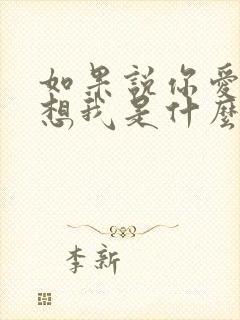 如果說你愛
想我是什麼
李新